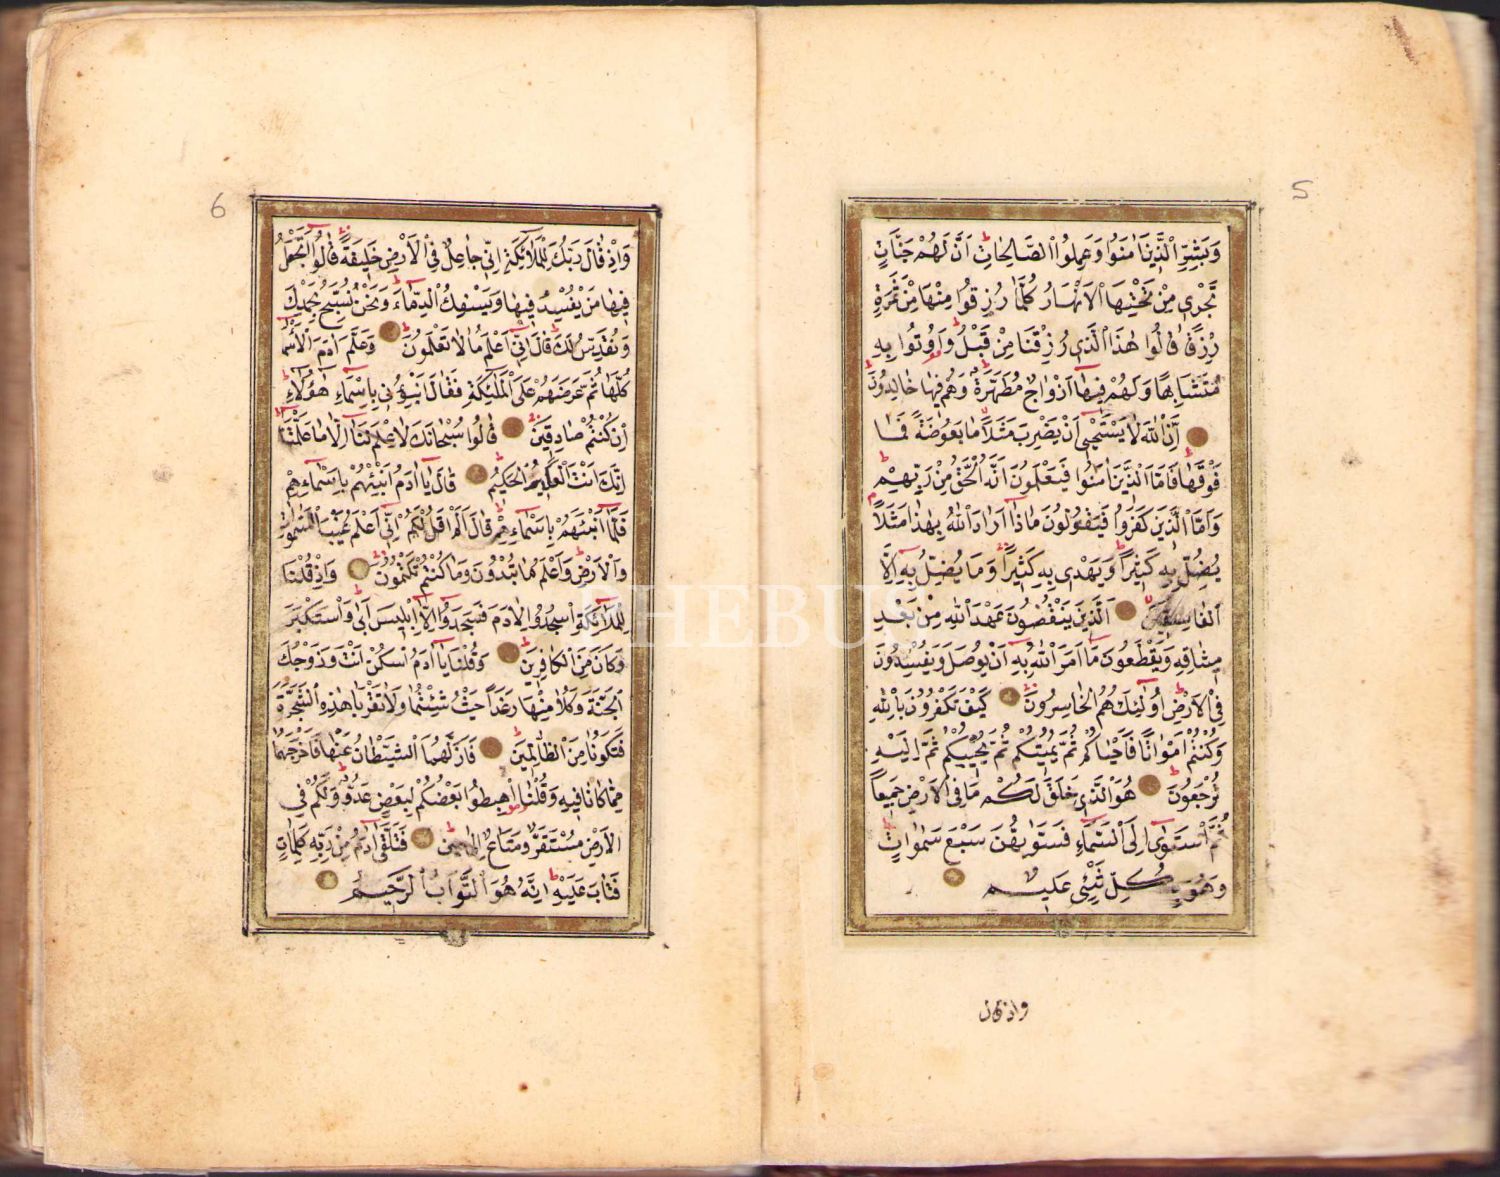 5
وَبَشِّرِ الَّذِينَ اٰمَنُوا وَعَمِلُوا الصَّالِحَاتِ اَنَّ لَهُمْ جَنَّاتٍ
تَجْرِي مِنْ تَحْتِهَا الْاَنْهَارُ كُلَّمَا رُزِقُوا مِنْهَا مِنْ ثَمَرَةٍ
رِزْقًا قَالُوا هٰذَا الَّذِي رُزِقْنَا مِنْ قَبْلُ وَاُوتُوا بِهِ
مُتَشَابِهًا وَلَهُمْ فِيهَا اَزْوَاجٌ مُطَهَّرَةٌ وَهُمْ فِيهَا خَالِدُونَ
اِنَّ اللّٰهَ لَا يَسْتَحْيِي اَنْ يَضْرِبَ مَثَلًا مَا بَعُوضَةً فَمَا
فَوْقَهَا فَاَمَّا الَّذِينَ اٰمَنُوا فَيَعْلَمُونَ اَنَّهُ الْحَقُّ مِنْ رَبِّهِمْ
وَاَمَّا الَّذِينَ كَفَرُوا فَيَقُولُونَ مَاذَا اَرَادَ اللّٰهُ بِهٰذَا مَثَلًا
يُضِلُّ بِهِ كَثِيرًا وَيَهْدِي بِهِ كَثِيرًا وَمَا يُضِلُّ بِهِ اِلَّا
الْفَاسِقِينَ اَلَّذِينَ يَنْقُضُونَ عَهْدَ اللّٰهِ مِنْ بَعْدِ
مِيثَاقِهِ وَيَقْطَعُونَ مَا اَمَرَ اللّٰهُ بِهِ اَنْ يُوصَلَ وَيُفْسِدُونَ
فِي الْاَرْضِ اُولٰئِكَ هُمُ الْخَاسِرُونَ كَيْفَ تَكْفُرُونَ بِاللّٰهِ
وَكُنْتُمْ اَمْوَاتًا فَاَحْيَاكُمْ ثُمَّ يُمِيتُكُمْ ثُمَّ يُحْيِيكُمْ ثُمَّ اِلَيْهِ
تُرْجَعُونَ هُوَ الَّذِي خَلَقَ لَكُمْ مَا فِي الْاَرْضِ جَمِيعًا
ثُمَّ اسْتَوٰى اِلَى السَّمَاءِ فَسَوّٰيهُنَّ سَبْعَ سَمٰوَاتٍ
وَهُوَ بِكُلِّ شَيْءٍ عَلِيمٌ
واذ قال
6
وَاِذْ قَالَ رَبُّكَ لِلْمَلَائِكَةِ اِنِّي جَاعِلٌ فِي الْاَرْضِ خَلِيفَةً قَالُوا اَتَجْعَلُ
فِيهَا مَنْ يُفْسِدُ فِيهَا وَيَسْفِكُ الدِّمَاءَ وَنَحْنُ نُسَبِّحُ بِحَمْدِكَ
وَنُقَدِّسُ لَكَ قَالَ اِنِّي اَعْلَمُ مَا لَا تَعْلَمُونَ وَعَلَّمَ اٰدَمَ الْاَسْمَاءَ
كُلَّهَا ثُمَّ عَرَضَهُمْ عَلَى الْمَلٰئِكَةِ فَقَالَ اَنْبِؤُنِي بِاَسْمَاءِ هٰؤُلَاءِ
اِنْ كُنْتُمْ صَادِقِينَ قَالُوا سُبْحَانَكَ لَا عِلْمَ لَنَا اِلَّا مَا عَلَّمْتَنَا
اِنَّكَ اَنْتَ الْعَلِيمُ الْحَكِيمُ قَالَ يَا اٰدَمُ اَنْبِئْهُمْ بِاَسْمَائِهِمْ
فَلَمَّا اَنْبَاَهُمْ بِاَسْمَائِهِمْ قَالَ اَلَمْ اَقُلْ لَكُمْ اِنِّي اَعْلَمُ غَيْبَ السَّمٰوَاتِ
وَالْاَرْضِ وَاَعْلَمُ مَا تُبْدُونَ وَمَا كُنْتُمْ تَكْتُمُونَ وَاِذْ قُلْنَا
لِلْمَلَائِكَةِ اسْجُدُوا لِاٰدَمَ فَسَجَدُوا اِلَّا اِبْلِيسَ اَبٰى وَاسْتَكْبَرَ
وَكَانَ مِنَ الْكَافِرِينَ وَقُلْنَا يَا اٰدَمُ اسْكُنْ اَنْتَ وَزَوْجُكَ
الْجَنَّةَ وَكُلَا مِنْهَا رَغَدًا حَيْثُ شِئْتُمَا وَلَا تَقْرَبَا هٰذِهِ الشَّجَرَةَ
فَتَكُونَا مِنَ الظَّالِمِينَ فَاَزَلَّهُمَا الشَّيْطَانُ عَنْهَا فَاَخْرَجَهُمَا
مِمَّا كَانَا فِيهِ وَقُلْنَا اهْبِطُوا بَعْضُكُمْ لِبَعْضٍ عَدُوٌّ وَلَكُمْ فِي
الْاَرْضِ مُسْتَقَرٌّ وَمَتَاعٌ اِلٰى حِينٍ فَتَلَقّٰى اٰدَمُ مِنْ رَبِّهِ كَلِمَاتٍ
فَتَابَ عَلَيْهِ اِنَّهُ هُوَ التَّوَّابُ الرَّحِيمُ
PHEBUS